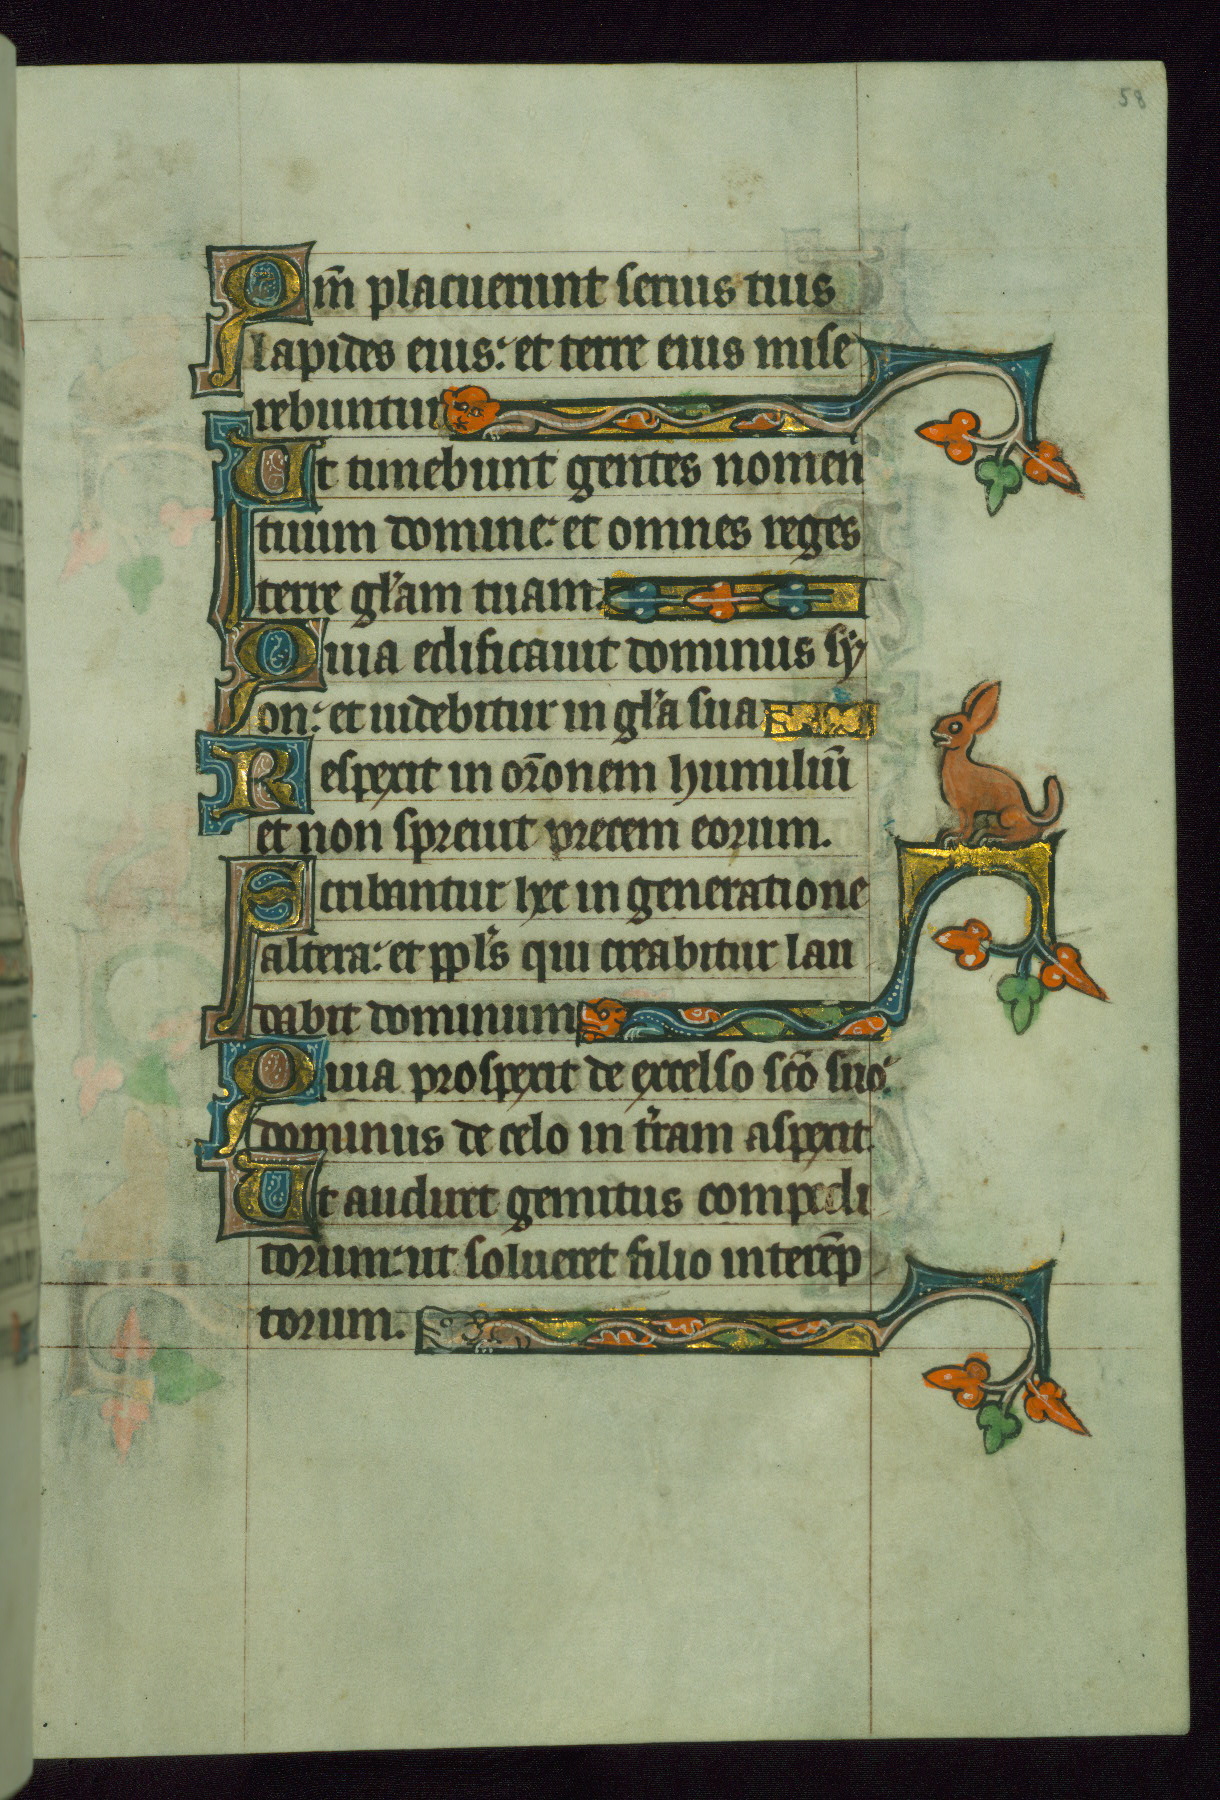 58
Qm̄ placuerunt seruis tuis
lapides eius: et terre eius mise
rebuntur
Et timebunt gentes nomen
tuum domine: et omnes reges
terre gl'am tuam.
Quia edificauit dominus sy
on: et uidebitur in gl'a sua
Respexit in or̄onem humiliū
et non spreuit precem eorum.
Scribantur hec in generatione
altera: et ppl's qui creabitur lau
dabit dominum
Quia prospexit de excelso scō suo:
dominus de celo in t'ram aspexit
Ut audiret gemitus compedi
torum: ut solueret filio interēp
torum.